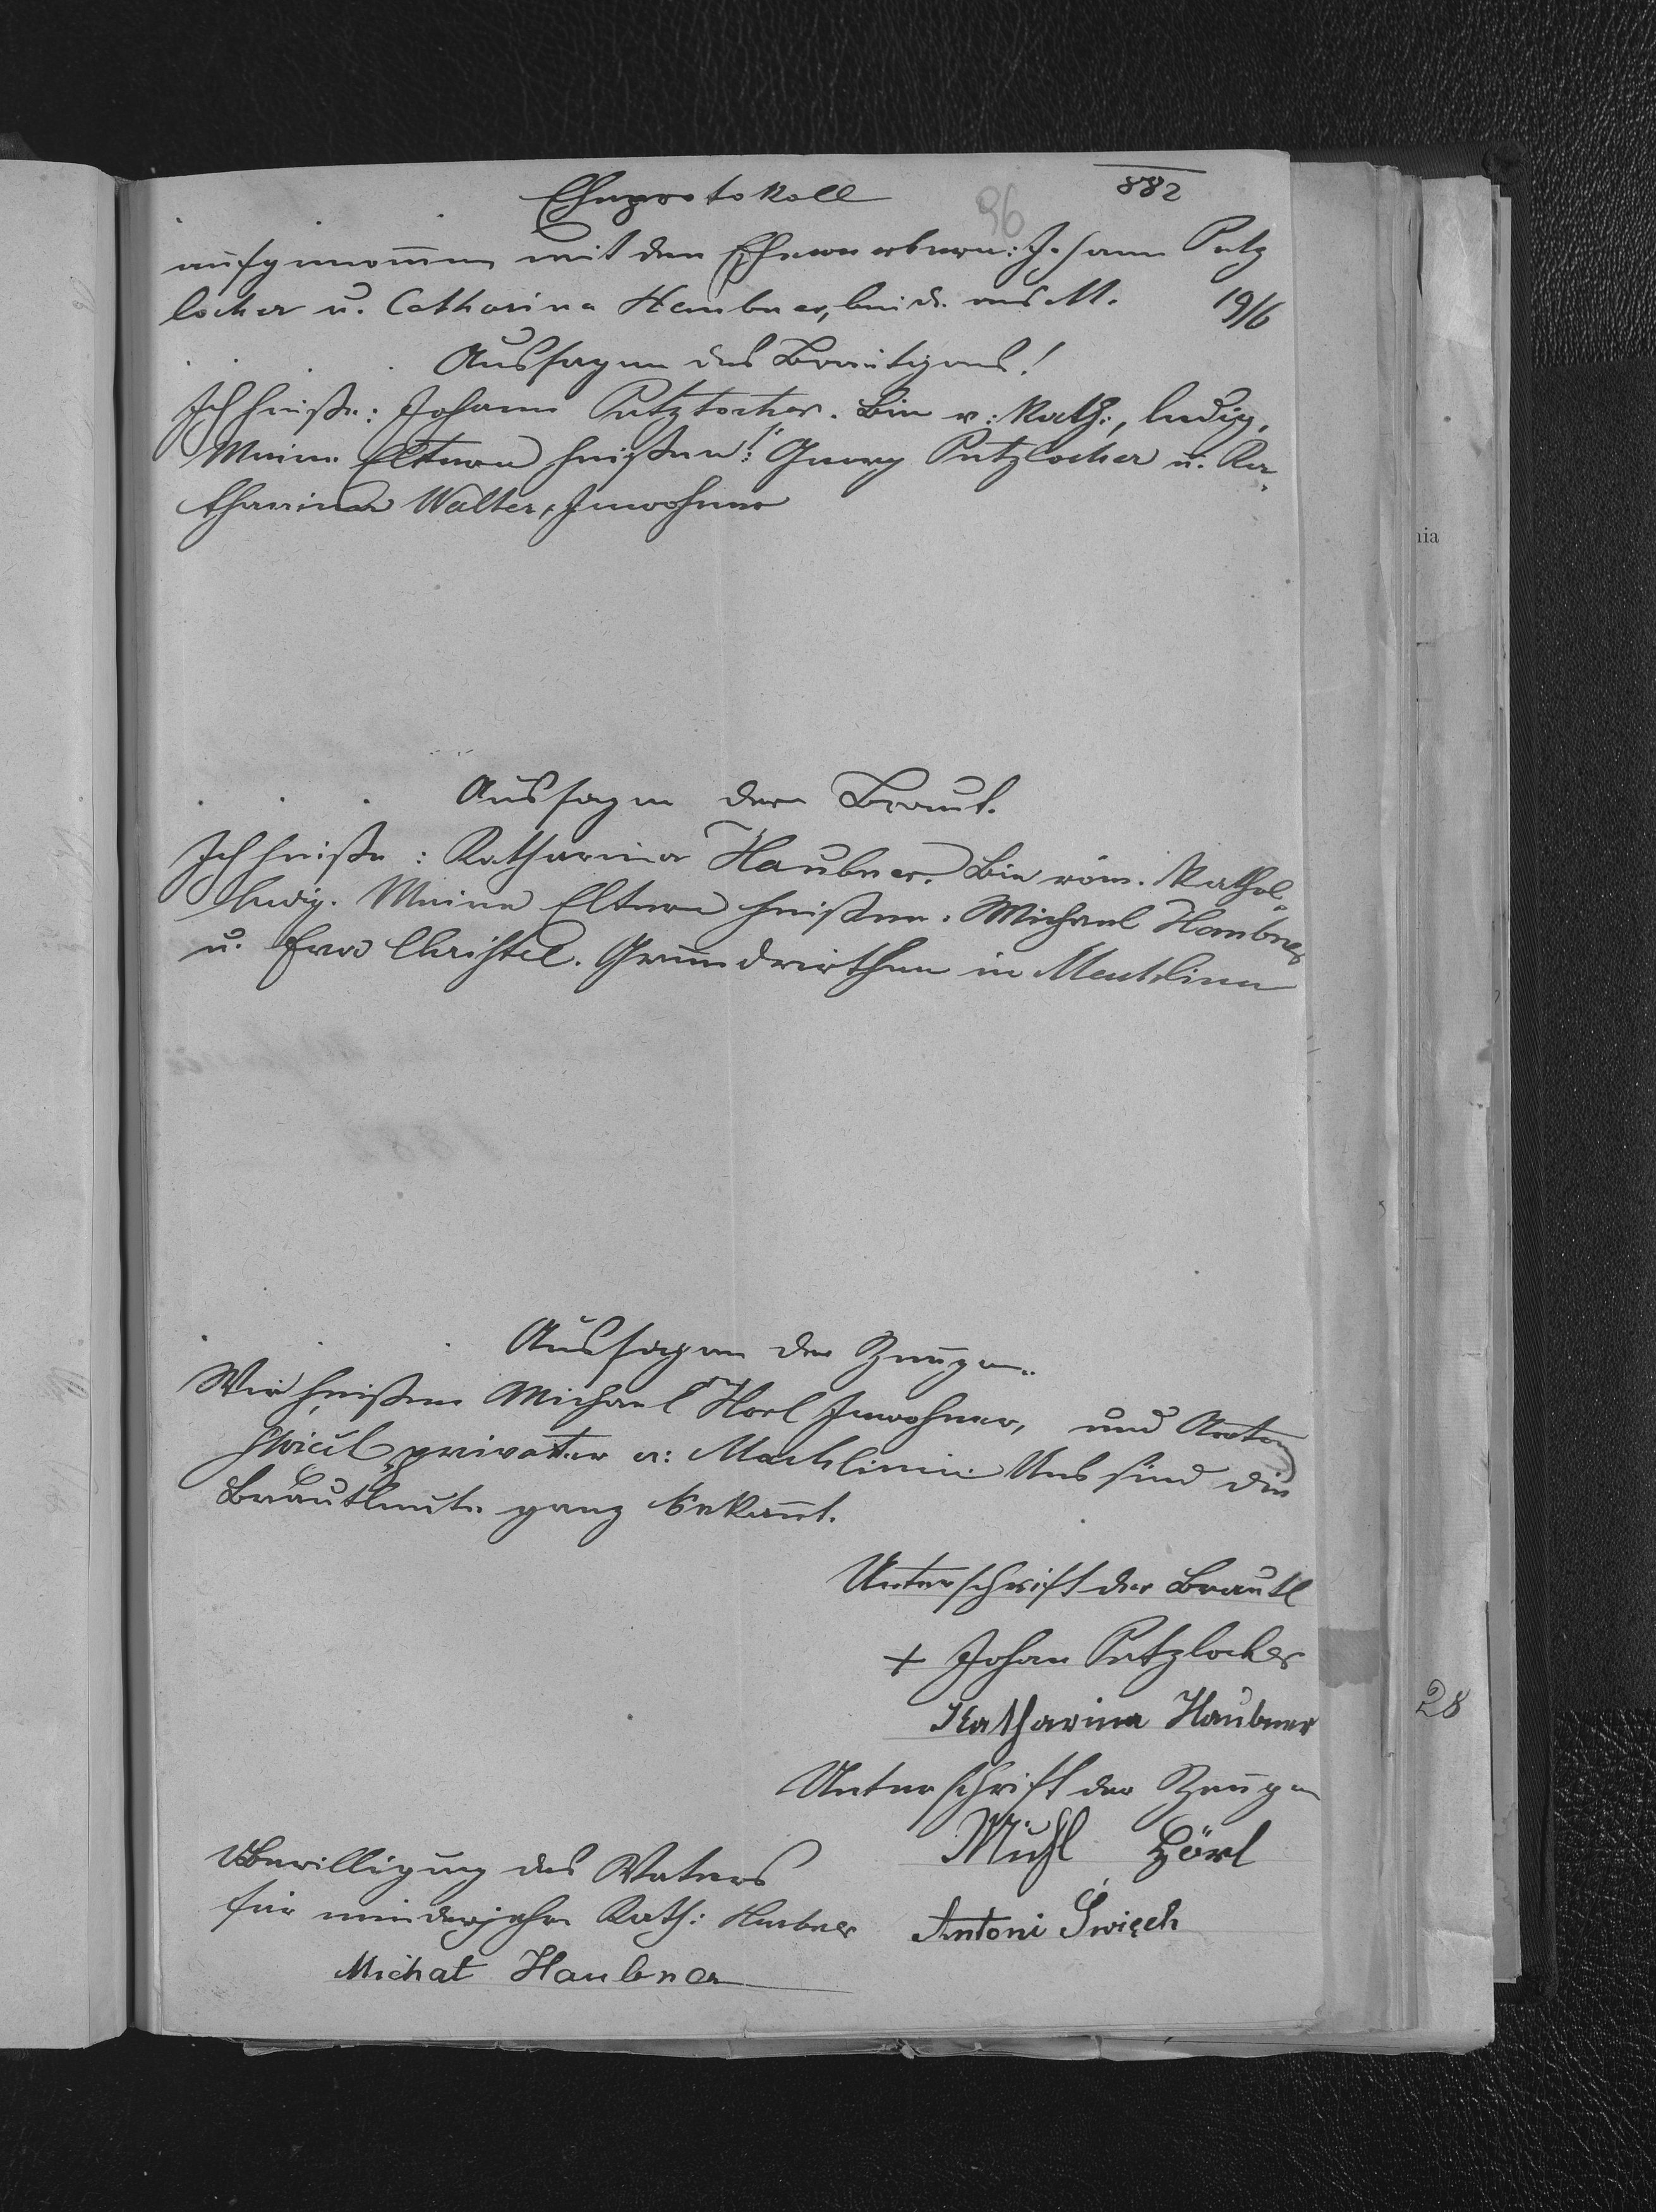 Eheprotokoll
96
882
aufgenomen mit den Ehewerbern: Johann Putz
locher u. Catharina Haubner, beide aus M.
19/6
Aussagen des Bräutigams!
Ich heiße: Johann Putzlocher. Bin r: Kath:, ledig,
Meine Eltern heißen: Georg Putzlocher u. Ka-
tharina Walter, Inwohner
Aussagen der Braut.
Ich heiße: Katharina Haubner. Bin röm. Kathol.
ledig. Meine Eltern heißen: Michael Haubner
u. Eva Christel. Grundwirthen in
Aussagen der Zeugen.
Wir heißen Michael Horl Inwohner, und Anton
privater a: Machlinin. Uns sind die
Brautleute ganz bekant.
Unterschrift der Brautl
+ Johan Putzlocher
Katharina Haubner
Unterschrift der Zeugen
Michl Hörl
Bewilligung des Vaters
für minderjähr Kath: Haubner
Antoni Święch
Michał Haubner
nia
28